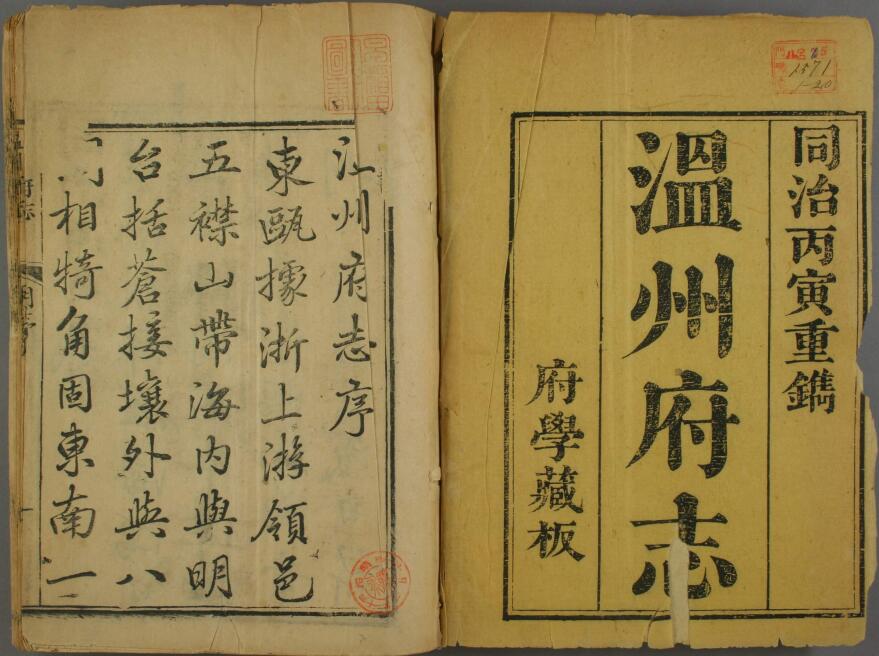 同治丙寅重鐫
溫州府志
府學藏板
1571
1-20
州府志序
東甌據浙上游領邑
五襟山帶海内與明
台括蒼接壤外與八
相犄角固東南一
府志